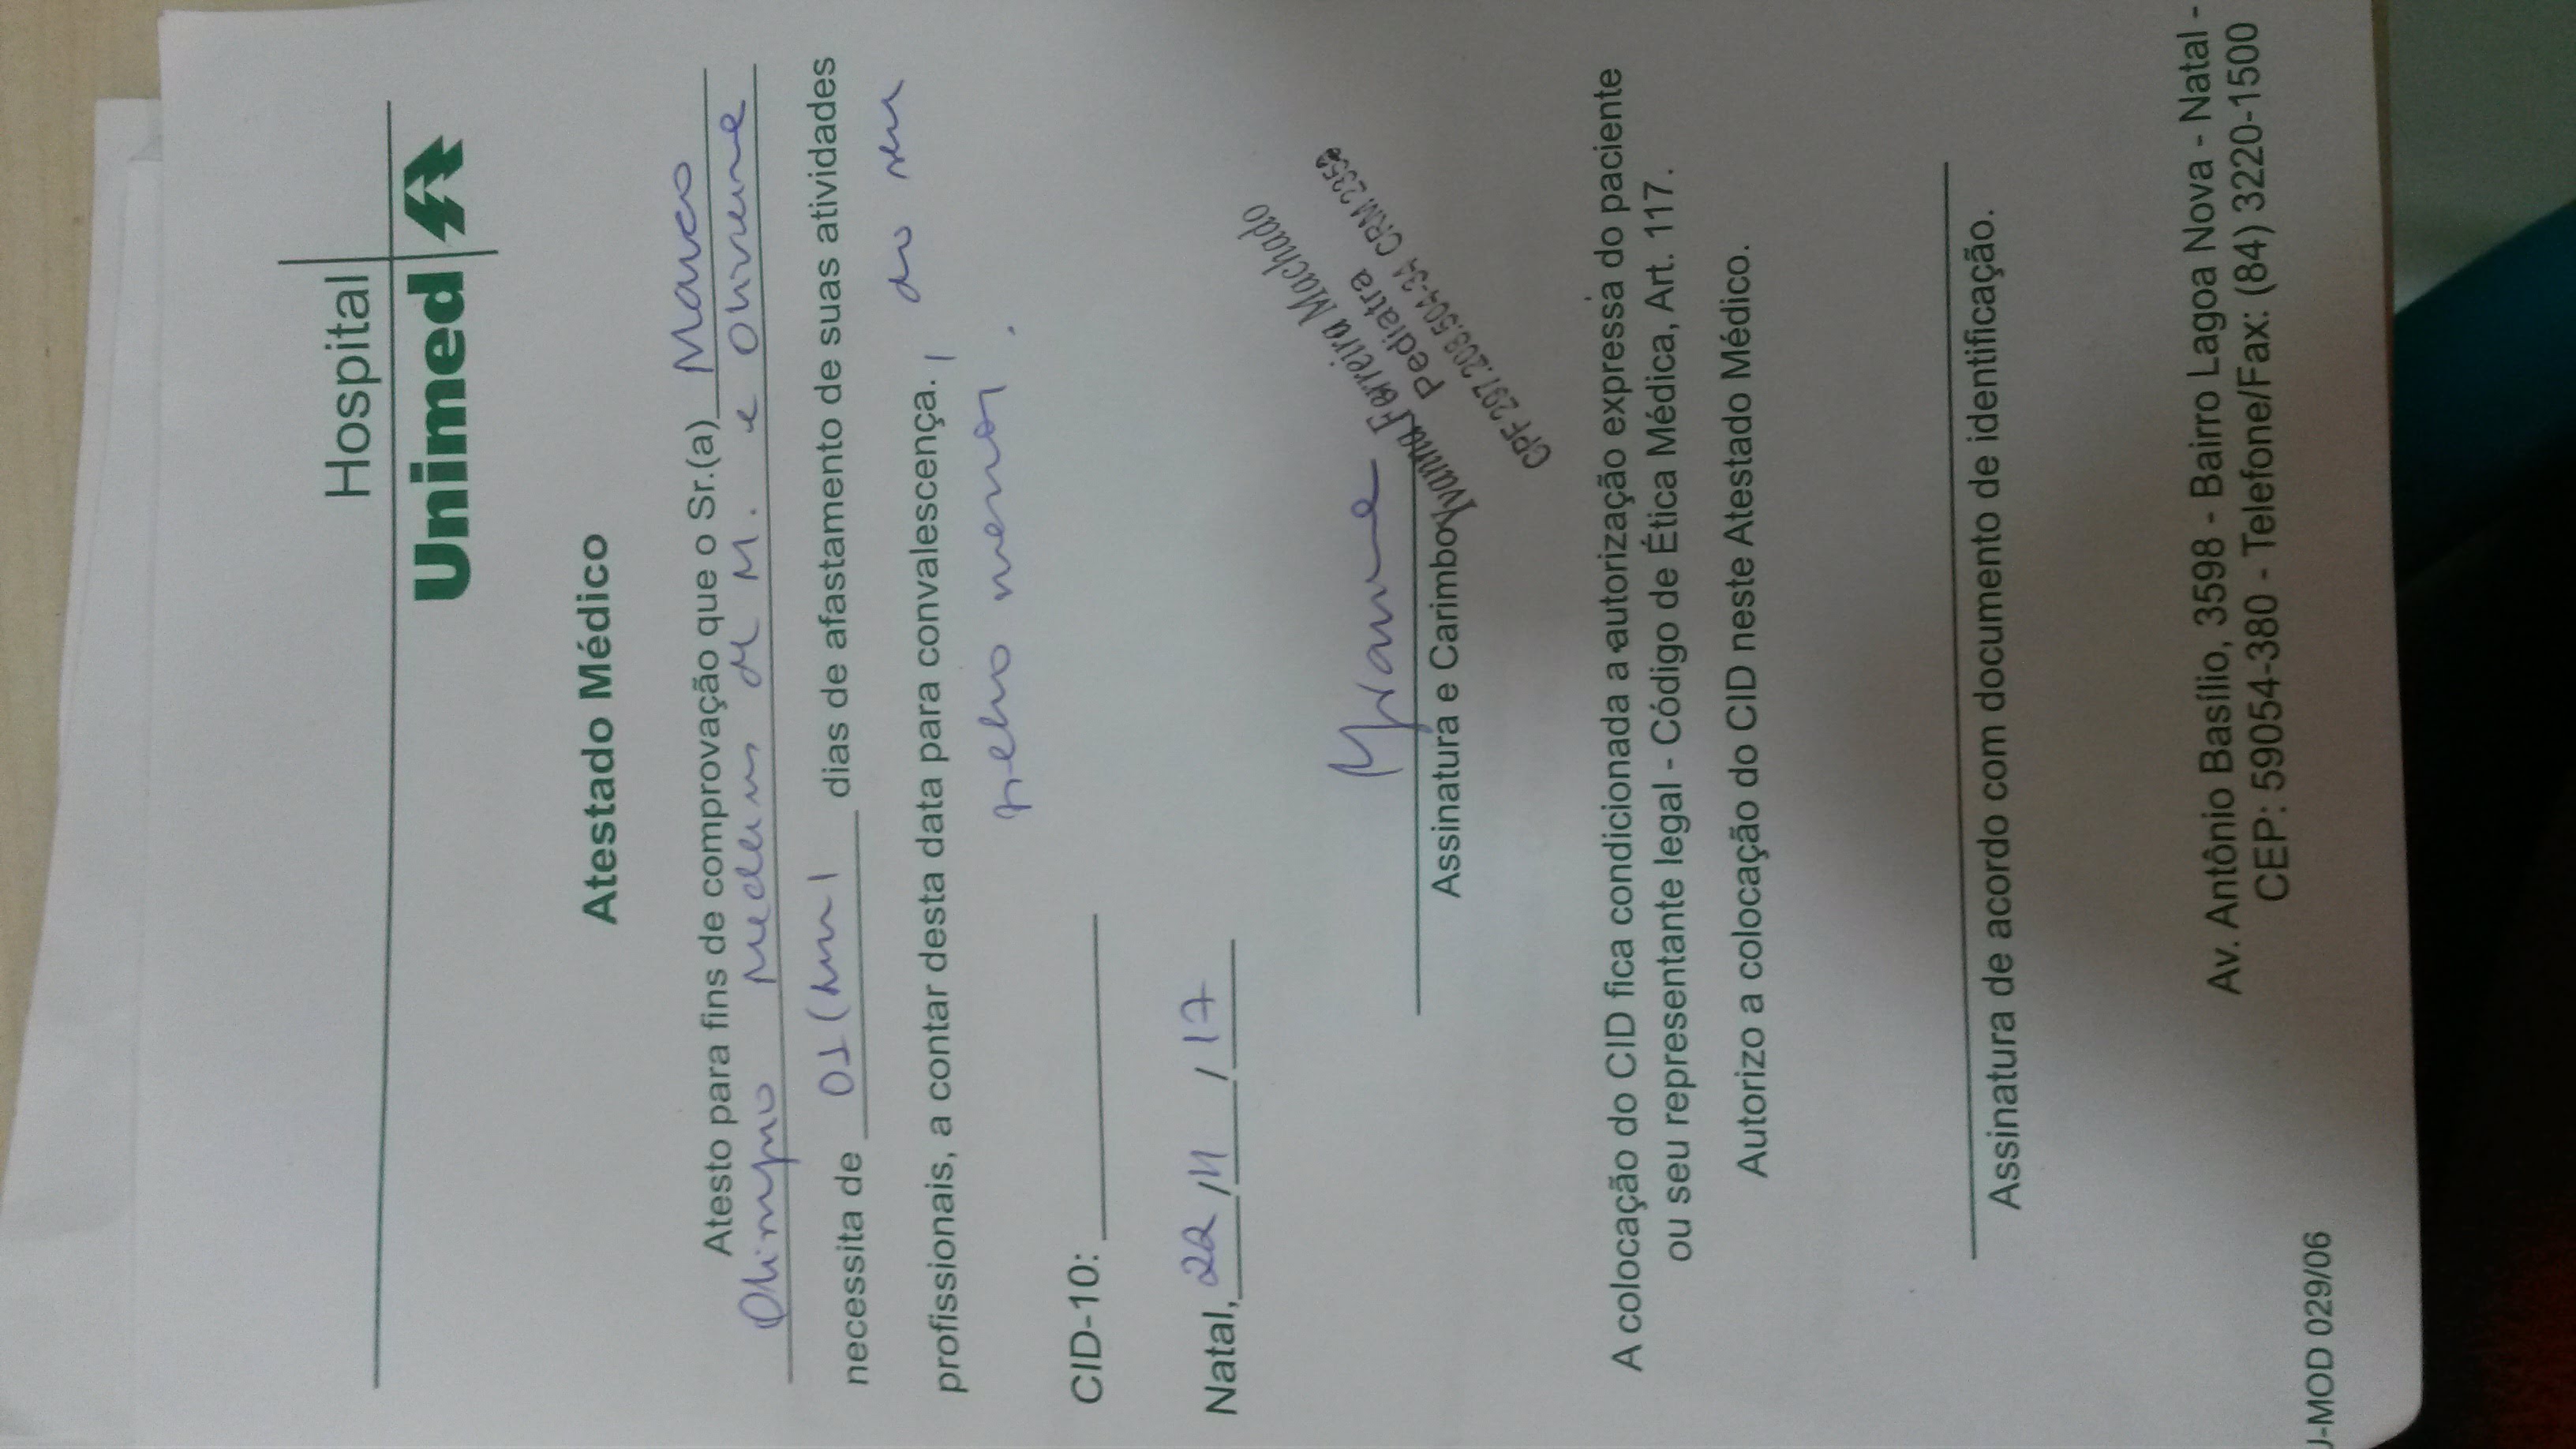 Hospital
Unimed
Atestado Médico
Atesto para fins de comprovação que o Sr.(a) Marco
Olimpio Medeiros de M. e Oliveira
necessita de 01 (um) dias de afastamento de suas atividades
profissionais, a contar desta data para convalescença. , do seu
filho menor.
CID-10:
Natal, 22 / 11 / 17
Yvanna
Assinatura e Carimbo
Yvanna Ferreira Machado
Pediatra
CPF 297.208.504-34 CRM
A colocação do CID fica condicionada a autorização expressa do paciente
ou seu representante legal - Código de Ética Médica, Art. 117.
Autorizo a colocação do CID neste Atestado Médico.
Assinatura de acordo com documento de identificação.
Av. Antônio Basílio, 3598 - Bairro Lagoa Nova - Natal -
CEP: 59054-380 - Telefone/Fax: (84) 3220-1500
J-MOD 029/06